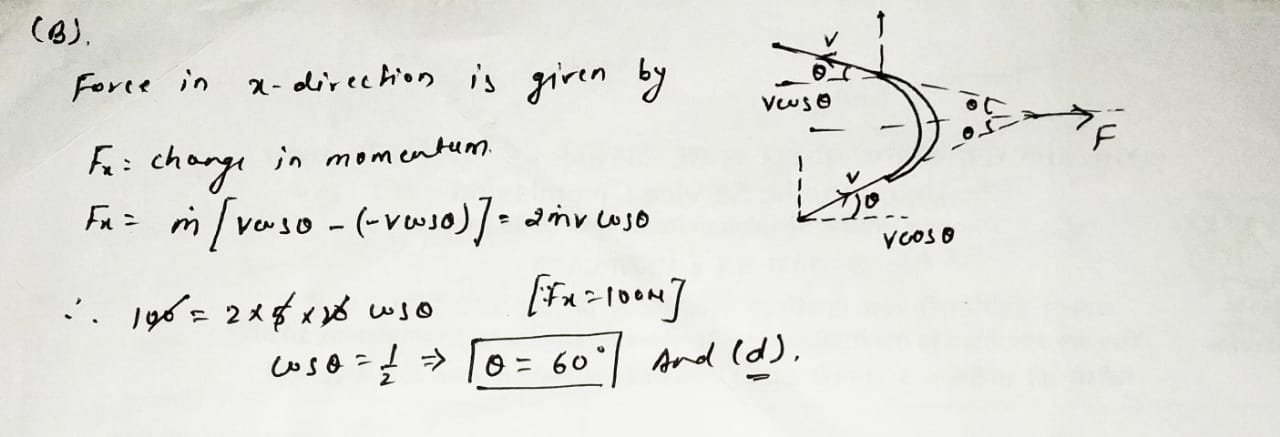 (B).
Force in x-direction is given by
Fx = change in momentum.
Fx = ṁ [vcosθ - (-vcosθ)] = 2ṁv cosθ
∴ 100 = 2 × 5 × 20 cosθ [Fx = 100N]
cosθ = 1/2 ⇒ θ = 60° And (d).
V
θ
Vcosθ
θ
θ
F
V
θ
Vcosθ